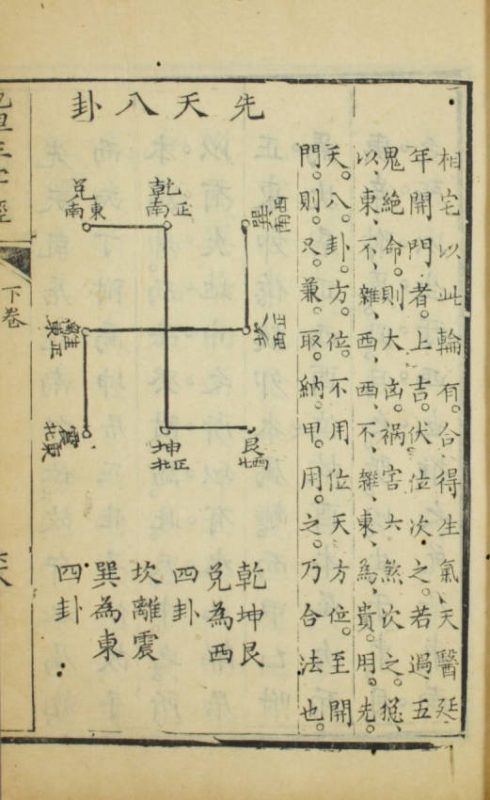 先天八卦
相宅以此輪有。合得生氣、天醫延
年開門者。上吉。伏位次之。若遇五
鬼絕命。則大凶。禍害六煞次之。總
以東、不雜、西西、不雜、東、為貴。用。先。
天。八。卦。方。位。不用位天方位。至開
門。則。又。兼。取。納。甲。用。之。乃合法也。
巽西南
乾正南
兌東南
坎正西
離正東
艮西北
坤正北
震東北
乾坤艮
兌為西
四卦
坎離震
巽為東
四卦
下卷